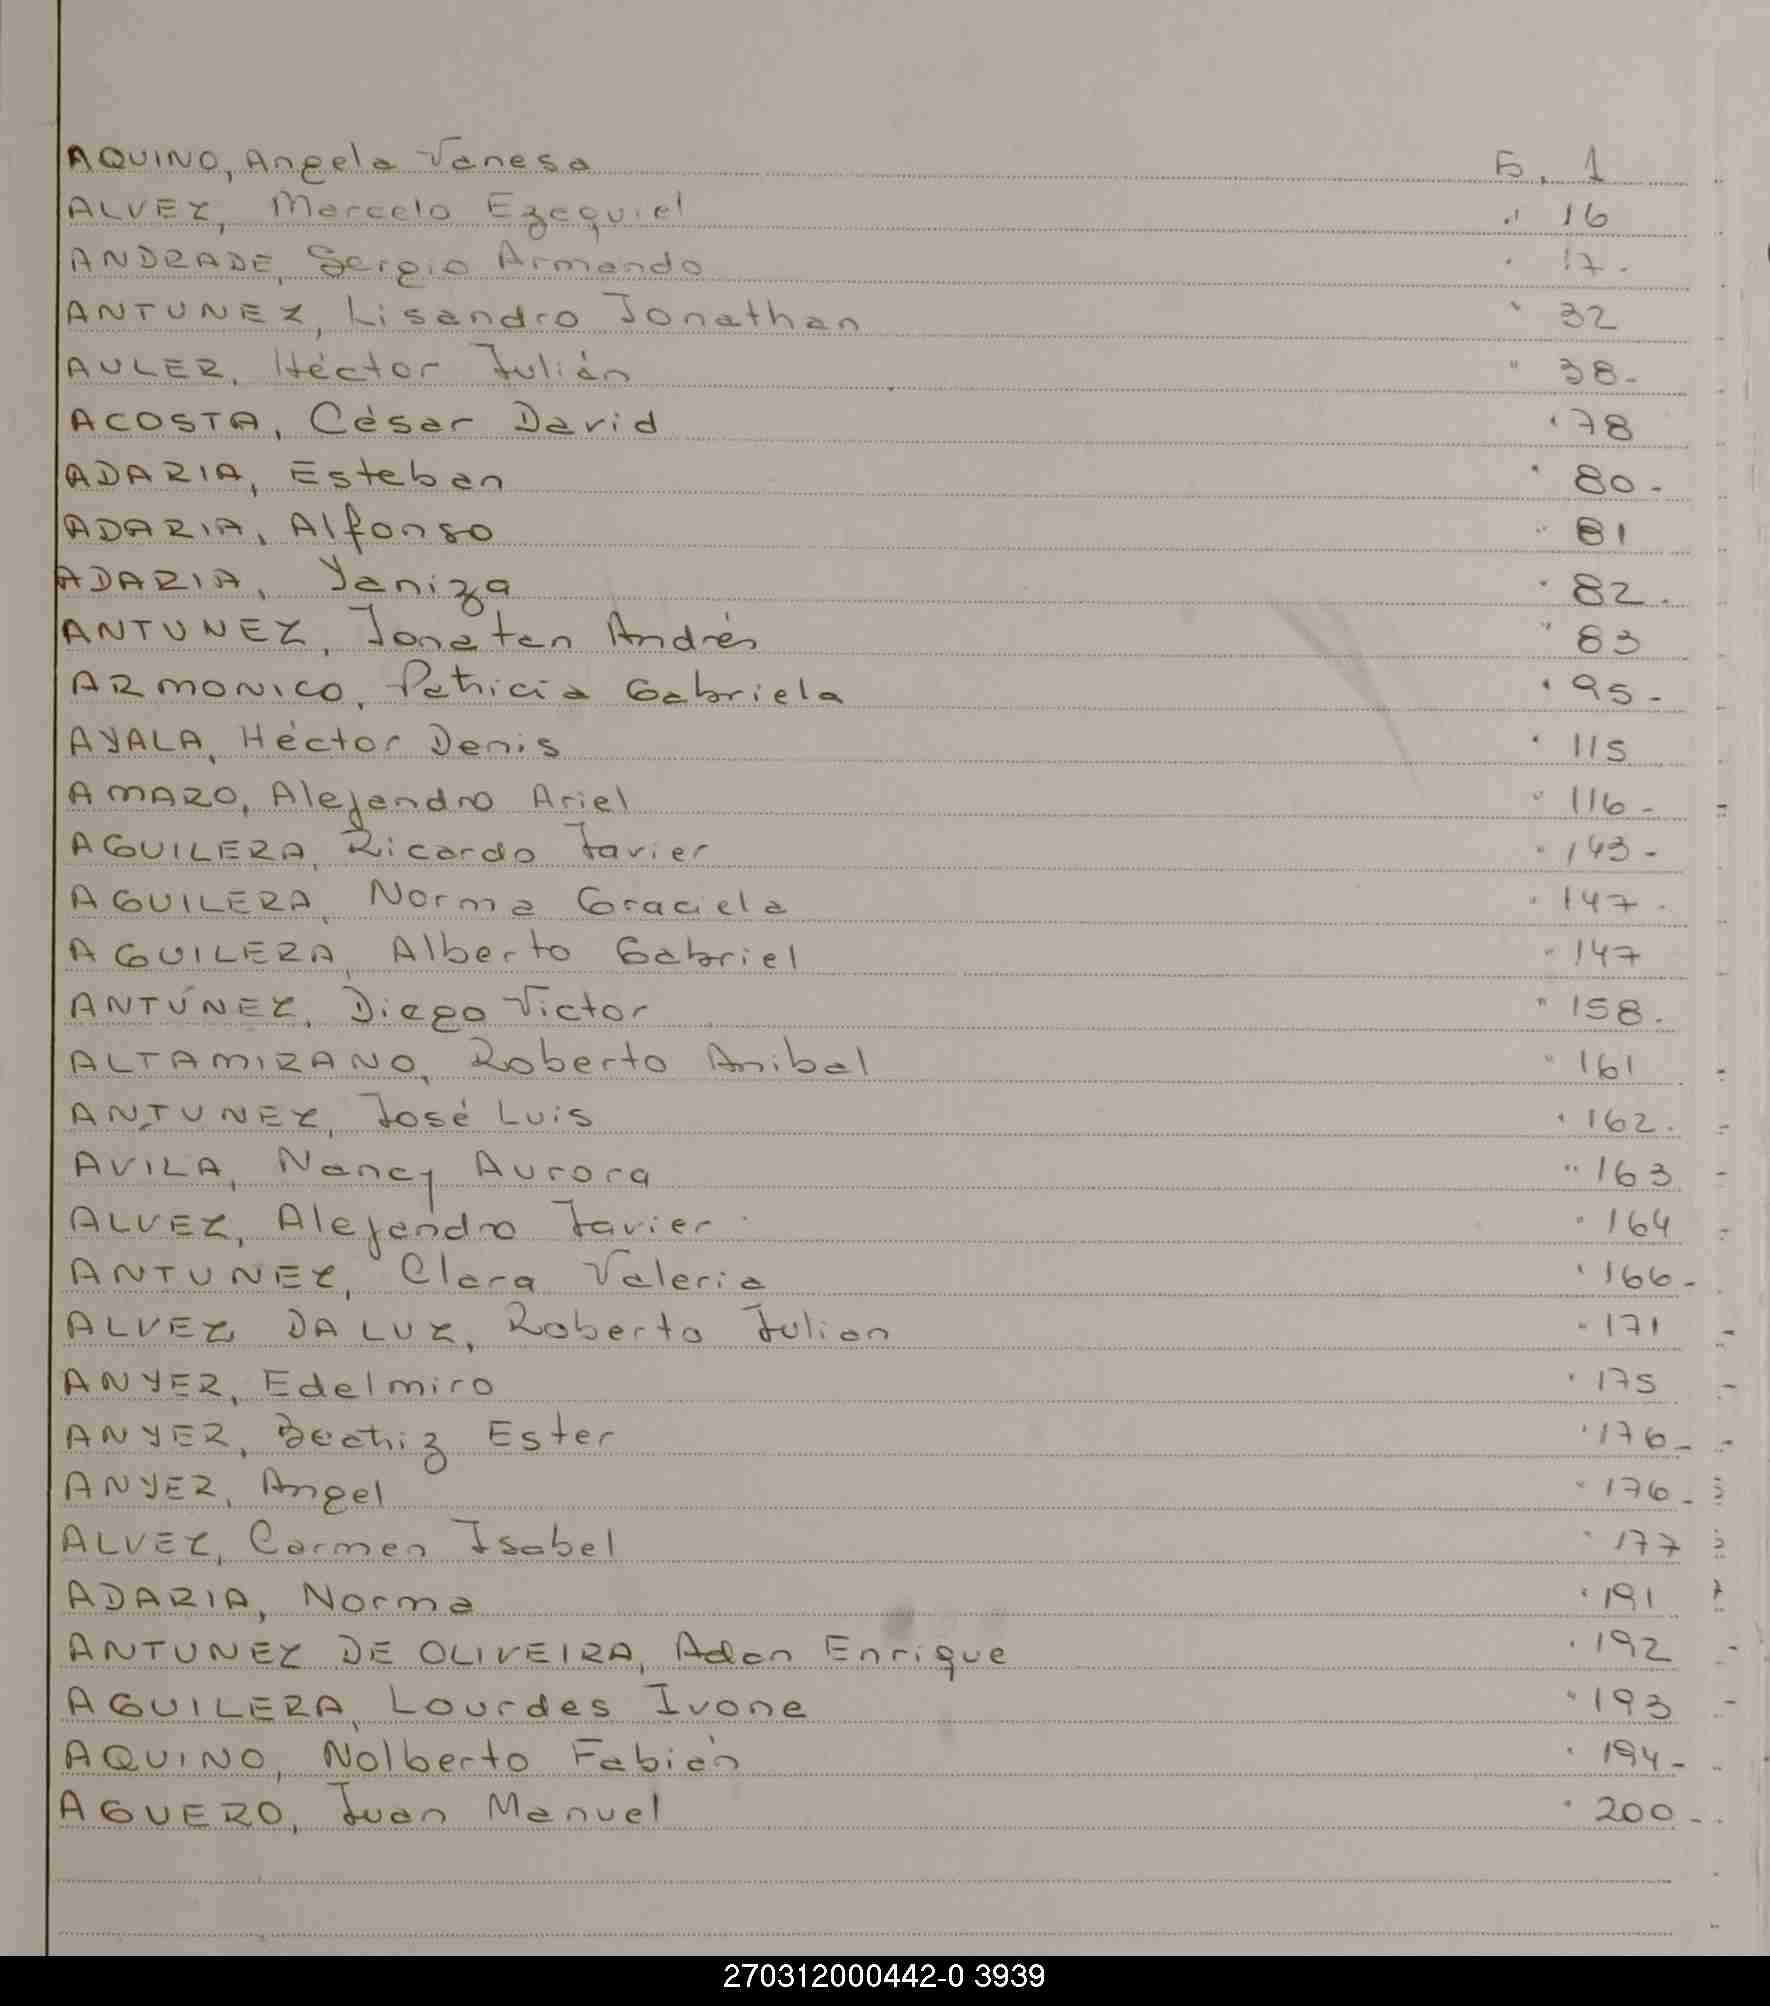 AQUINO, Angela Vanesa F. 1
ALVEZ, Marcelo Ezequiel " 16
ANDRADE, Sergio Armando " 17.
ANTUNEZ, Lisandro Jonathan " 32
AULER, Héctor Julián " 38-
ACOSTA, César David " 78
ADARIA, Esteban " 80-
ADARIA, Alfonso " 81
ADARIA, Yaniza " 82.
ANTUNEZ, Jonatan Andrés " 83
ARMONICO, Patricia Gabriela " 95-
AYALA, Héctor Denis " 115
AMARO, Alejandro Ariel " 116-
AGUILERA, Ricardo Javier " 143-
AGUILERA, Norma Graciela " 147.
AGUILERA, Alberto Gabriel " 147
ANTÚNEZ, Diego Victor " 158.
ALTAMIRANO, Roberto Anibal " 161
ANTUNEZ, José Luis " 162.
AVILA, Nancy Aurora " 163
ALVEZ, Alejandro Javier " 164
ANTUNEZ, Clara Valeria " 166-
ALVEZ DA LUZ, Roberto Julian " 171
ANYER, Edelmiro " 175
ANYER, Beatriz Ester " 176-
ANYER, Angel " 176-
ALVEZ, Carmen Isabel " 177
ADARIA, Norma " 191
ANTUNEZ DE OLIVEIRA, Adan Enrique " 192
AGUILERA, Lourdes Ivone " 193
AQUINO, Nolberto Fabián " 194-
AGUERO, Juan Manuel " 200-
270312000442-0 3939